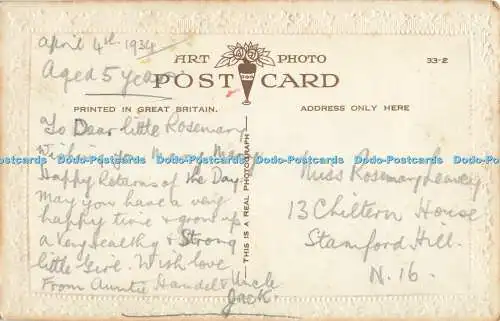 April 4th 1934
Aged 5 years
ART PHOTO
POST CARD
33-2
PRINTED IN GREAT BRITAIN.
ADDRESS ONLY HERE
To Dear little Rosemary
Wishing you Many Many
Happy Returns of the Day
May you have a very
happy time & grow up
a very healthy & Strong
little Girl. With love
From Auntie & Uncle
Jack.
THIS IS A REAL PHOTOGRAPH
Miss Rosemary Leavey
13 Chiltern House
Stamford Hill.
N.16.
Postcards Postcards Postcards Postcards Postcards Postcards Postcards Postcards Postcards